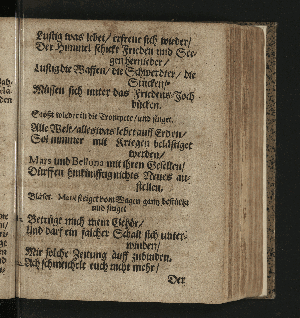 Lustig was lebet/ erfreue sich wieder/
Der Himmel schickt Frieden und See-
gen hernieder/
Lustig die Waffen/ die Schwerdter/ die
Stücken/
Müssen sich unter das Friedens-Joch
bücken.
Stößt wieder in die Trompete/ und singet.
Alle Welt/ alles was lebet auff Erden/
Sol nimmer mit Kriegen belästiget
werden/
Mars und Bellona mit ihren Gesellen/
Dürffen hinkünfftig nichts Neues an-
stellen.
Bläset. Mars steiget vom Wagen gantz bestürtzt
und singet
Betrügt mich mein Gehör/
Und darf ein falscher Schall sich unter-
winden/
Mir solche Zeitung auff zubinden.
Ach schmeichele euch nicht mehr/
Der